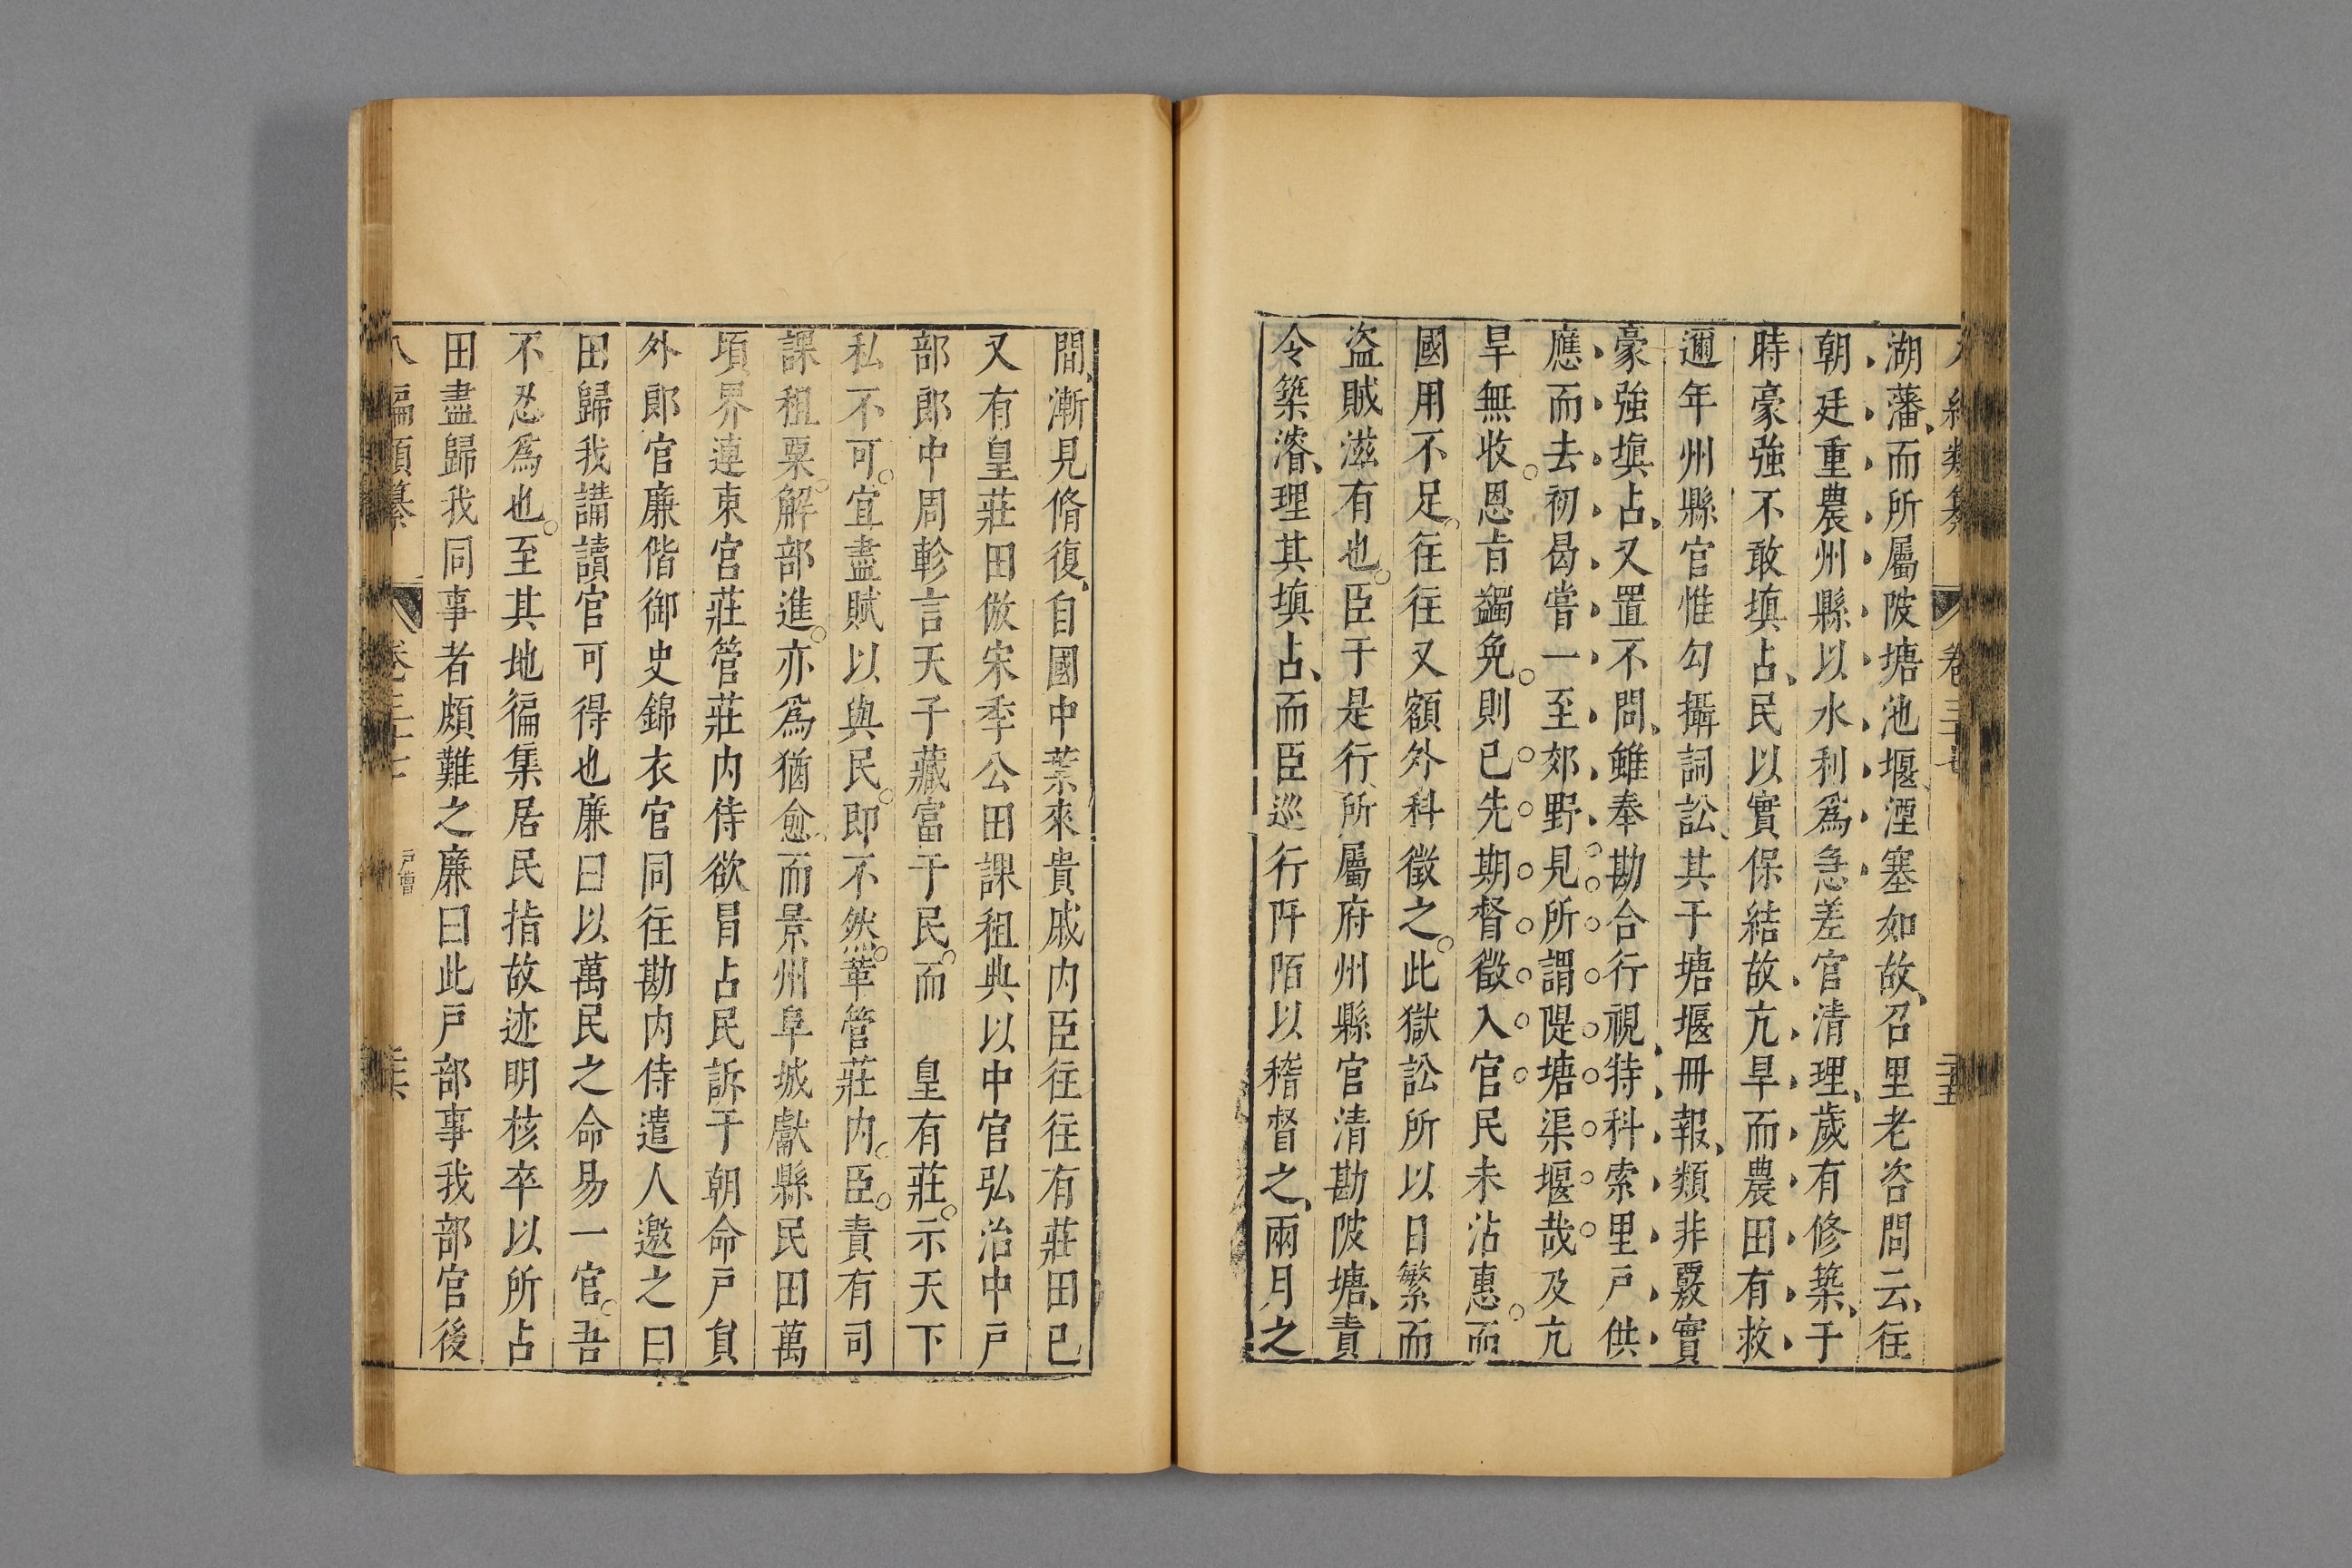 湖藩、而所屬陂塘池堰、湮塞如故、召里老咨問云、往
朝廷重農州縣以水利爲急差官清理、歲有修築、于
時豪強不敢塡占、民以實保結故亢旱而農田有救
邇年州縣官惟勾攝詞訟、其于塘堰冊報、類非覈實
豪強塡占、又置不問、雖奉勘合行視、特科索里戶供
應而去初曷嘗一至郊野見所謂隄塘渠堰哉及亢
旱無收。恩㫖蠲免。則已先期督徵入官民未沾惠。而
國用不足、往往又額外科徵之。此獄訟所以日繁而
盜賊滋有也。臣于是行所屬府州縣官清勘陂塘、責
令築濬、理其塡占、而臣巡行阡陌以稽督之、兩月之
間、漸見脩復、自國中葉來貴戚内臣往往有莊田已
又有皇莊田倣宋季公田課租典以中官弘治中戶
部郎中周軫言天子藏富于民。而 皇有莊。示天下
私不可。宜盡賦以與民。即不然。革管莊内臣。責有司
課租粟。解部進。亦爲猶愈、而景州阜城獻縣民田萬
頃界連東宮莊管莊内侍欲冒占民訴于朝命戶貟
外郎官廉偕御史錦衣官同往勘内侍遣人邀之曰
田歸我講讀官可得也廉曰以萬民之命易一官。吾
不忍爲也。至其地徧集居民指故迹明核卒以所占
田盡歸我同事者頗難之廉曰此戶部事我部官後
八編類纂 卷三十七 戶曹 二十六